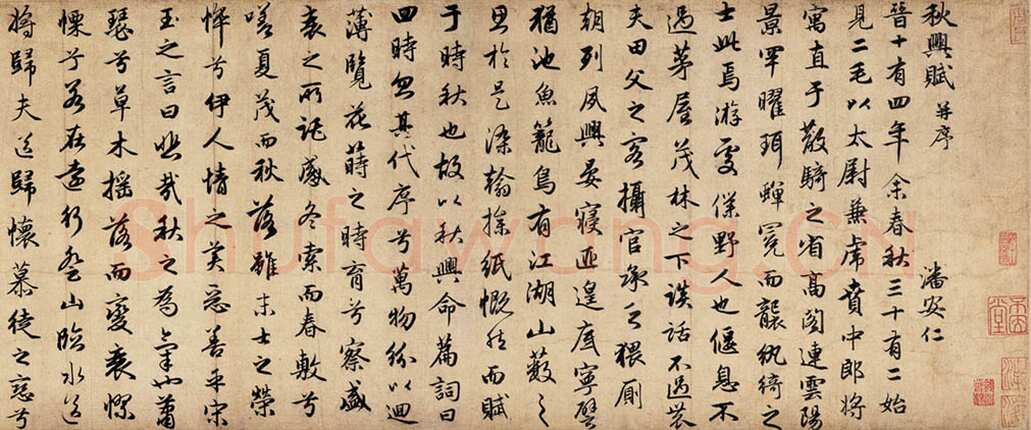 秋興賦 并序
潘安仁
晉十有四年余春秋三十有二始
見二毛以太尉兼虎賁中郎將
寓直于散騎之省高閣連雲陽
景罕曜珥蟬冕而襲紈綺之
士此焉游處僕野人也偃息不
過茅屋茂林之下談話不過農
夫田父之客攝官承乏猥廁
朝列夙興晏寢匪遑底寧譬
猶池魚籠鳥有江湖山藪之
思於是染翰操紙慨然而賦
于時秋也故以秋興命篇詞曰
四時忽其代序兮萬物紛以迴
薄覽花蒔之時育兮察盛
衰之所託感冬索而春敷兮
嗟夏茂而秋落雖末士之榮
悴兮伊人情之美惡善乎宋
玉之言曰悲哉秋之為氣也蕭
瑟兮草木搖落而變衰憭
慄兮若在遠行登山臨水送
將歸夫送歸懷慕徒之戀兮
Shufawang.cn